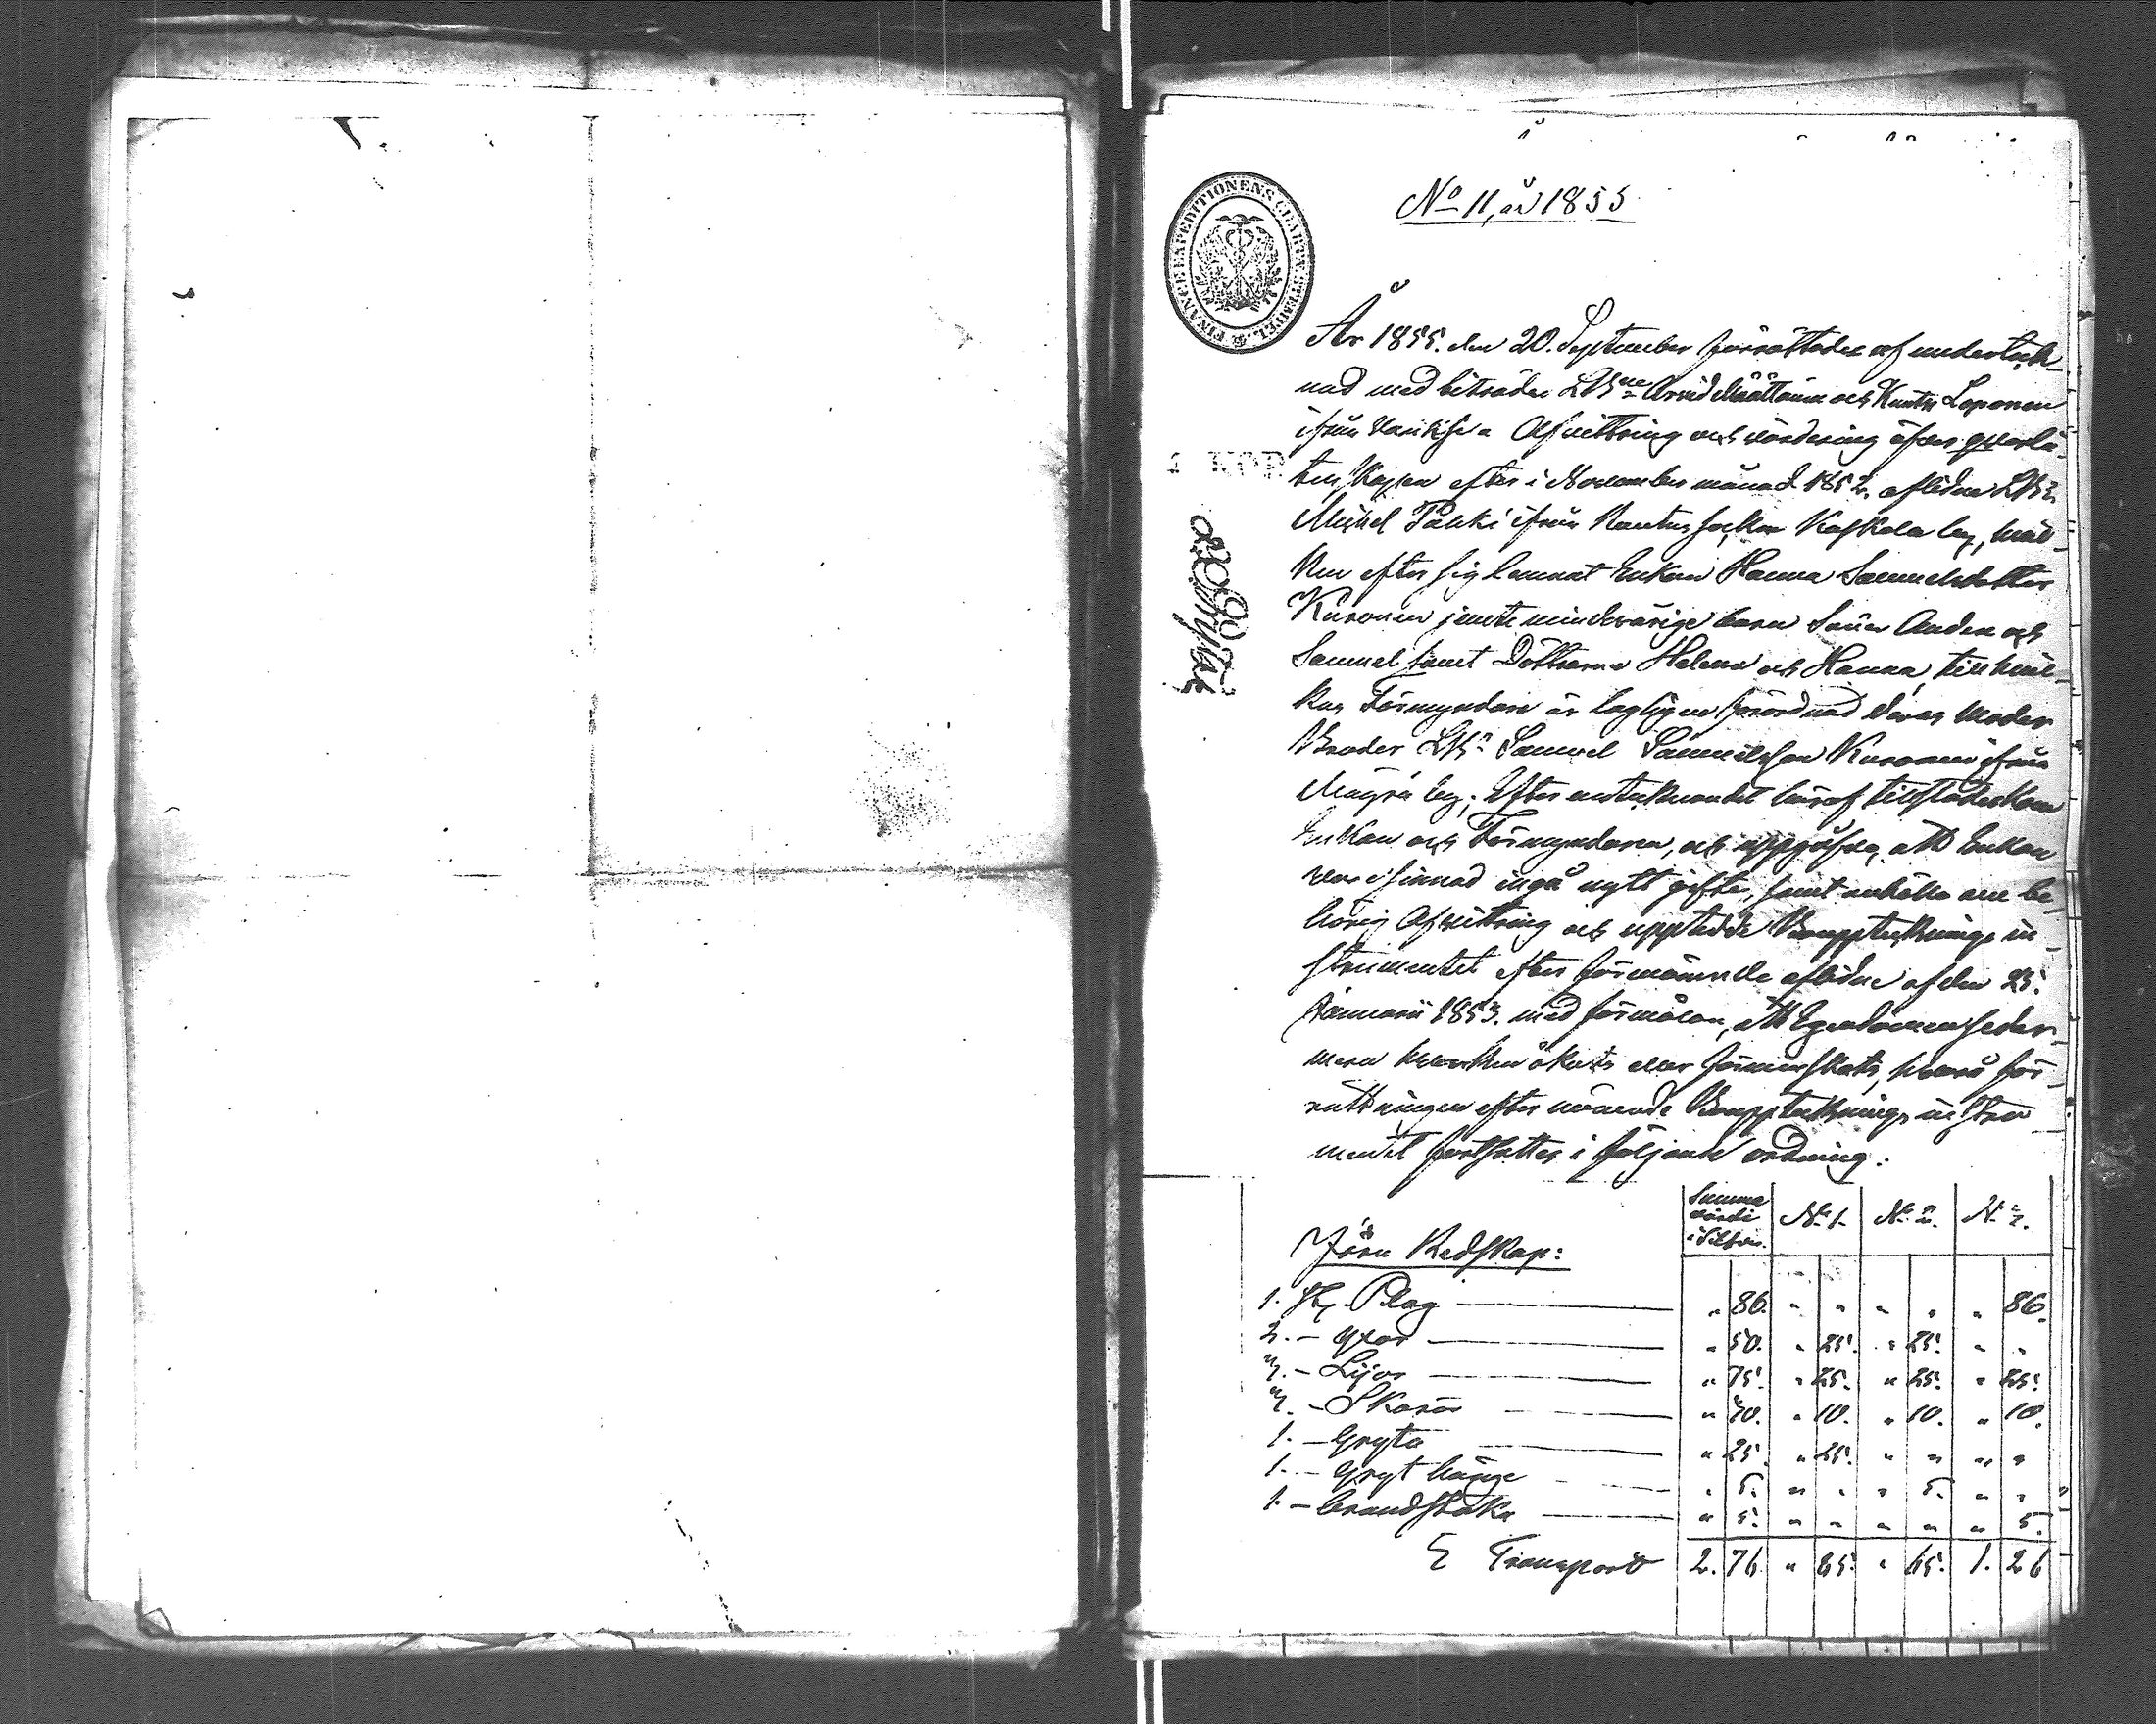 No 11, år 1855
FINANCE EXPEDITIONENS CHARTÆ STEMPEL
År 1855. den 20. September förrättades af underteck-
nad med biträde LBne Arvid Määttänen och Knuts Loponen
ifrån Afvittring och värdering öfver qvarlå-
tenskapen efter i November månad 1852. aflidne LB:
Michel Pukki ifrån Rautus socken Kaskala by, hvil-
ken efter sig lemnat Enkan Hanna Samuelsdotter
Kuronen jemte minderårige barn Sönen Anders och
Samuel samt Döttrarne Helena och Hanna, till hvil-
kas Förmyndare är lagligen förordnad deras Moder
Broder LBn Samuel Samuelsson Kuronen ifrån
Mägrä by; Efter antecknandet häraf tillstädeskom
Enkan och Förmyndaren, och uppgåfvo, att Enkan
var sinnad ingå nytt gifte, samt anhöllo om be-
hörig Afvittring och uppteddde Boupptecknings in-
strumentet efter förenämnde aflidne af den 25.
Januarii 1853. med förmälan, att Egendomen seder-
mera hvarken ökats eller förminskats, hvarå för-
rättningen efter nämnde Bouppteckning instru
mentet fortsattes i följande ordning:
4 KOP.
Summa värde i Silfver. No 1. No 2. No 3.
Jörn Redskap:
1. St. Plog „ 86. „ „ „ „ „ 86.
2. – Yxor „ 50. „ 25. „ 25. „ „
3. – Lijor „ 75. „ 25. „ 25. „ 25.
3. – Skäror „ 30. „ 10. „ 10. „ 10.
1. – Gryta „ 25. „ 25. „ „ „ „
1. – Gryt hänge „ 5. „ „ „ 5. „ „
1. – brandstake „ 5. „ „ „ „ „ 5.
Transport 2. 76. „ 85. „ 65. 1. 26